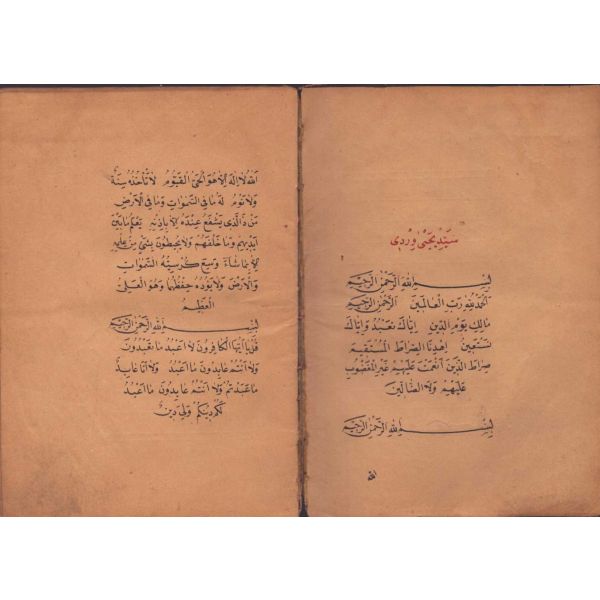 سَيِّدْ يَحْيٰى وِرْدِى
بِسْمِ اللهِ الرَّحْمٰنِ الرَّحِيمِ
اَلْحَمْدُ لِلّٰهِ رَبِّ الْعَالَمِينَ اَلرَّحْمٰنِ الرَّحِيمِ
مَالِكِ يَوْمِ الدِّينِ اِيَّاكَ نَعْبُدُ وَاِيَّاكَ
نَسْتَعِينُ اِهْدِنَا الصِّرَاطَ الْمُسْتَقِيمَ
صِرَاطَ الَّذِينَ اَنْعَمْتَ عَلَيْهِمْ غَيْرِ الْمَغْضُوبِ
عَلَيْهِمْ وَلَا الضَّالِّينَ
بِسْمِ اللهِ الرَّحْمٰنِ الرَّحِيمِ
الله
اَللهُ لَا اِلٰهَ اِلَّا هُوَ الْحَىُّ الْقَيُّومُ لَا تَأْخُذُهُ سِنَةٌ
وَلَا نَوْمٌ لَهُ مَا فِى السَّمٰوَاتِ وَمَا فِى الْاَرْضِ
مَنْ ذَا الَّذِى يَشْفَعُ عِنْدَهُ اِلَّا بِاِذْنِهِ يَعْلَمُ مَا بَيْنَ
اَيْدِيهِمْ وَمَا خَلْفَهُمْ وَلَا يُحِيطُونَ بِشَىْءٍ مِنْ عِلْمِهِ
اِلَّا بِمَا شَاءَ وَسِعَ كُرْسِيُّهُ السَّمٰوَاتِ
وَالْاَرْضَ وَلَا يَؤُدُهُ حِفْظُهُمَا وَهُوَ الْعَلِىُّ
الْعَظِيمُ
بِسْمِ اللهِ الرَّحْمٰنِ الرَّحِيمِ
قُلْ يَا اَيُّهَا الْكَافِرُونَ لَا اَعْبُدُ مَا تَعْبُدُونَ
وَلَا اَنْتُمْ عَابِدُونَ مَا اَعْبُدُ وَلَا اَنَا عَابِدٌ
مَا عَبَدْتُمْ وَلَا اَنْتُمْ عَابِدُونَ مَا اَعْبُدُ
لَكُمْ دِينُكُمْ وَلِىَ دِينِ